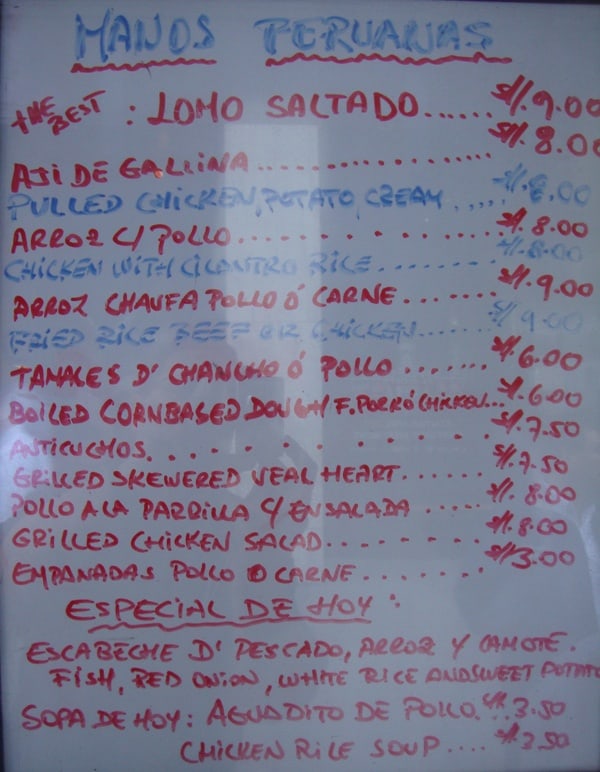 MANOS PERUANAS
THE BEST : LOMO SALTADO...... S/. 9.00
AJI DE GALLINA................. S/. 8.00
PULLED CHICKEN, POTATO, CREAM ..... S/. 8.00
ARROZ C/POLLO............ S/. 8.00
CHICKEN WITH CILANTRO RICE....... S/. 8.00
ARROZ CHAUFA POLLO Ó CARNE...... S/. 9.00
FRIED RICE BEEF OR CHICKEN..... S/ 9.00
TAMALES D' CHANCHO Ó POLLO ....... S/. 6.00
BOILED CORNBASED DOUGH/ F. PORK Ó CHICKEN... S/. 6.00
ANTICUCHOS............ S/. 7.50
GRILLED SKEWERED VEAL HEART....... S/. 7.50
POLLO A LA PARRILLA C/ ENSALADA ..... S/. 8.00
GRILLED CHICKEN SALAD........ S/. 8.00
EMPANADAS POLLO O CARNE....... S/ 3.00
ESPECIAL DE HOY :
ESCABECHE D' PESCADO, ARROZ Y CAMOTE.
FISH, RED ONION, WHITE RICE AND SWEET POTATO
SOPA DE HOY: AGUADITO DE POLLO... S/. 3.50
CHICKEN RICE SOUP .... S/. 3.50